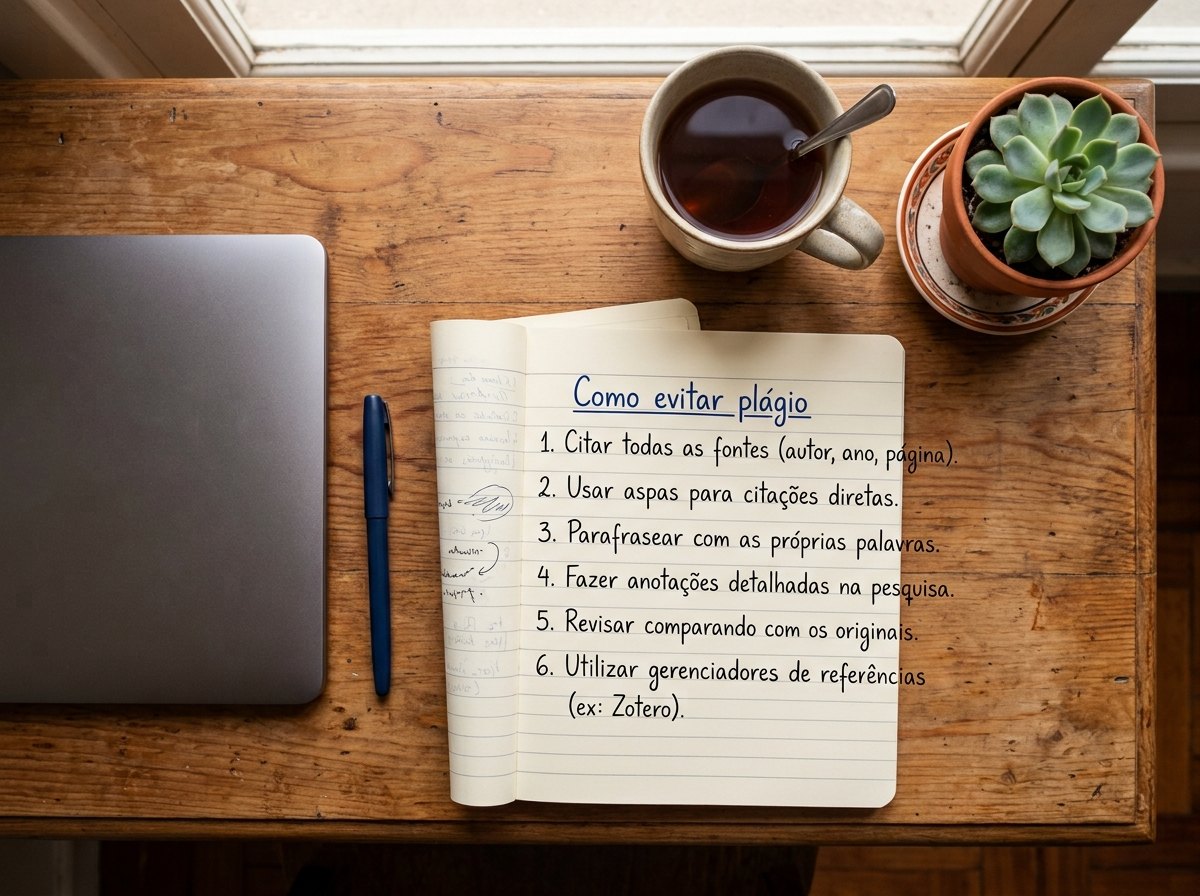 Como evitar plágio
1. Citar todas as fontes (autor, ano, página).
2. Usar aspas para citações diretas.
3. Parafrasear com as próprias palavras.
4. Fazer anotações detalhadas na pesquisa.
5. Revisar comparando com os originais.
6. Utilizar gerenciadores de referências
(ex: Zotero).